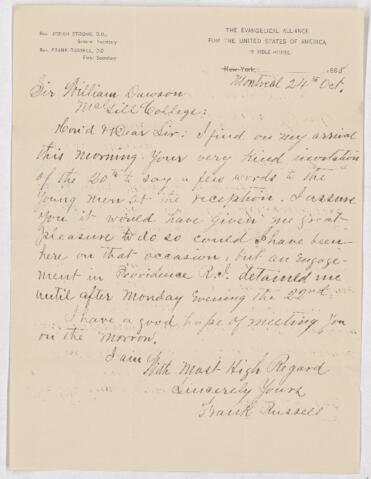 Rev. JOSIAH STRONG, D.D.,
General Secretary
Rev. FRANK RUSSELL, D.D.
Field Secretary
THE EVANGELICAL ALLIANCE
FOR THE UNITED STATES OF AMERICA
BIBLE HOUSE.
New York, 1888
Montreal 24th Oct.
Sir William Dawson
McGill College:
Hon'd & Dear Sir: I find on my arrival
this morning your very kind invitation
of the 20th to say a few words to the
young men at the reception. I assure
you it would have given me great
pleasure to do so could I have been
here on that occasion, but an engage-
ment in Providence R.I. detained me
until after Monday Evening the 22nd.
I have a good hope of meeting you
on the morrow.
I am With Most High Regard
Sincerely Yours
Frank Russell